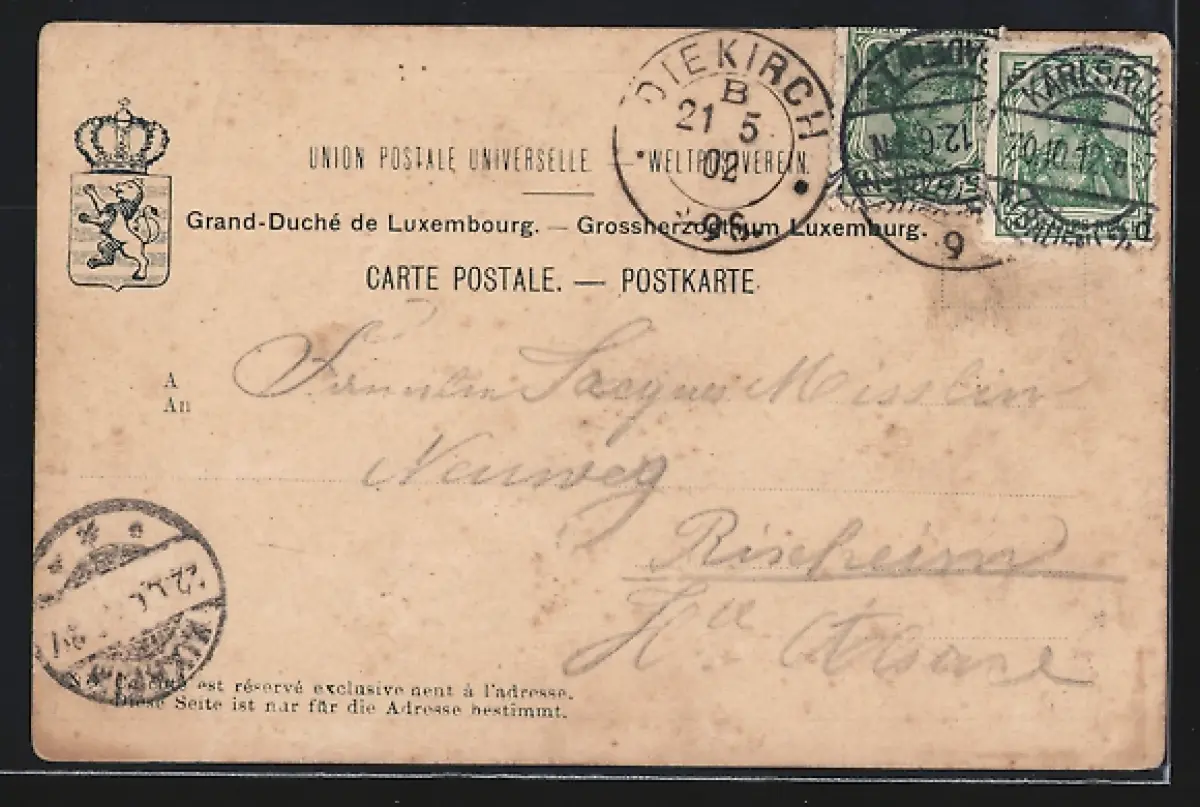 DIEKIRCH
B
21 5
02
9-6
KARLSRUHE
20.10.12.6-7
UNION POSTALE UNIVERSELLE. — WELTPOSTVEREIN.
Grand-Duché de Luxembourg. — Grossherzogthum Luxemburg.
CARTE POSTALE. — POSTKARTE
A
An
Jacques Misslin
Neuweg
Rixheim
Hte Alsace
est réservé exclusivement à l'adresse.
Diese Seite ist nur für die Adresse bestimmt.